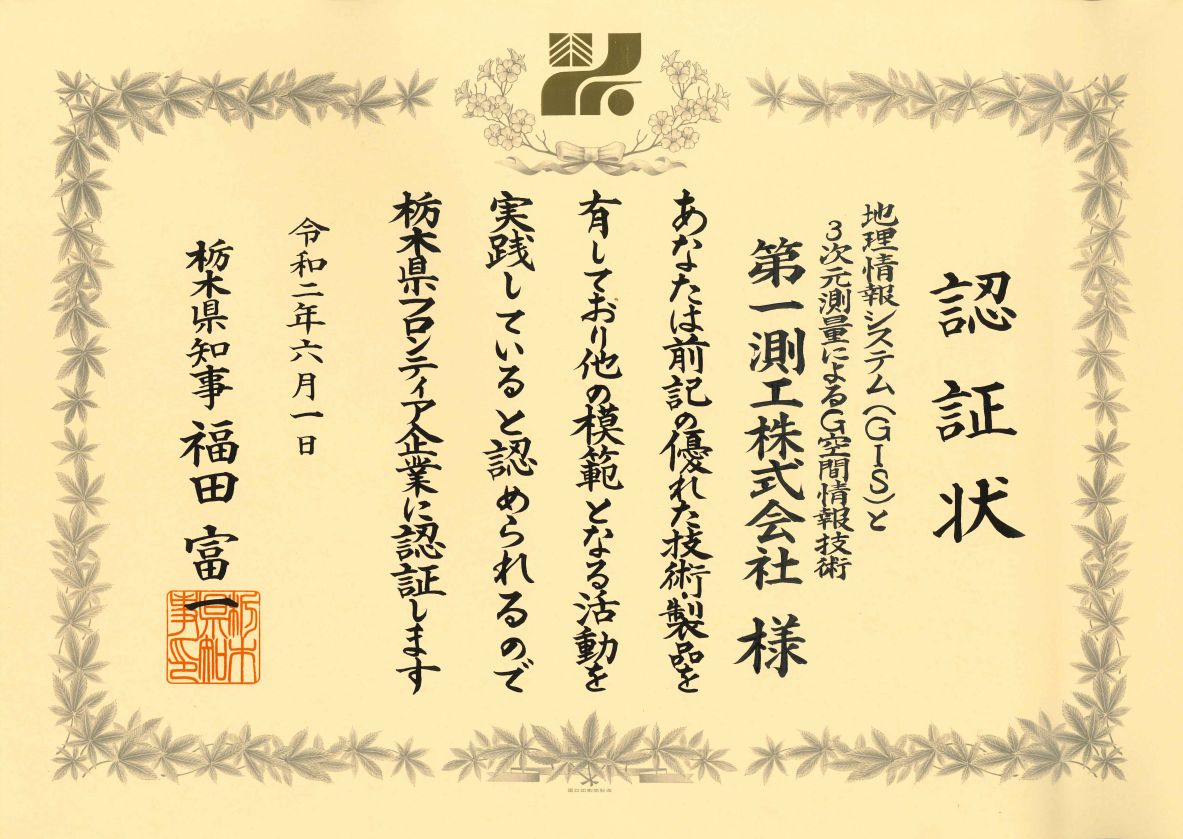 認証状
地理情報システム（GIS）と
３次元測量によるG空間情報技術
第一測工株式会社 様
あなたは前記の優れた技術・製品を
有しており他の模範となる活動を
実践していると認められるので
栃木県フロンティア企業に認証します
令和二年六月一日
栃木県知事 福田 富一
栃木県知事印